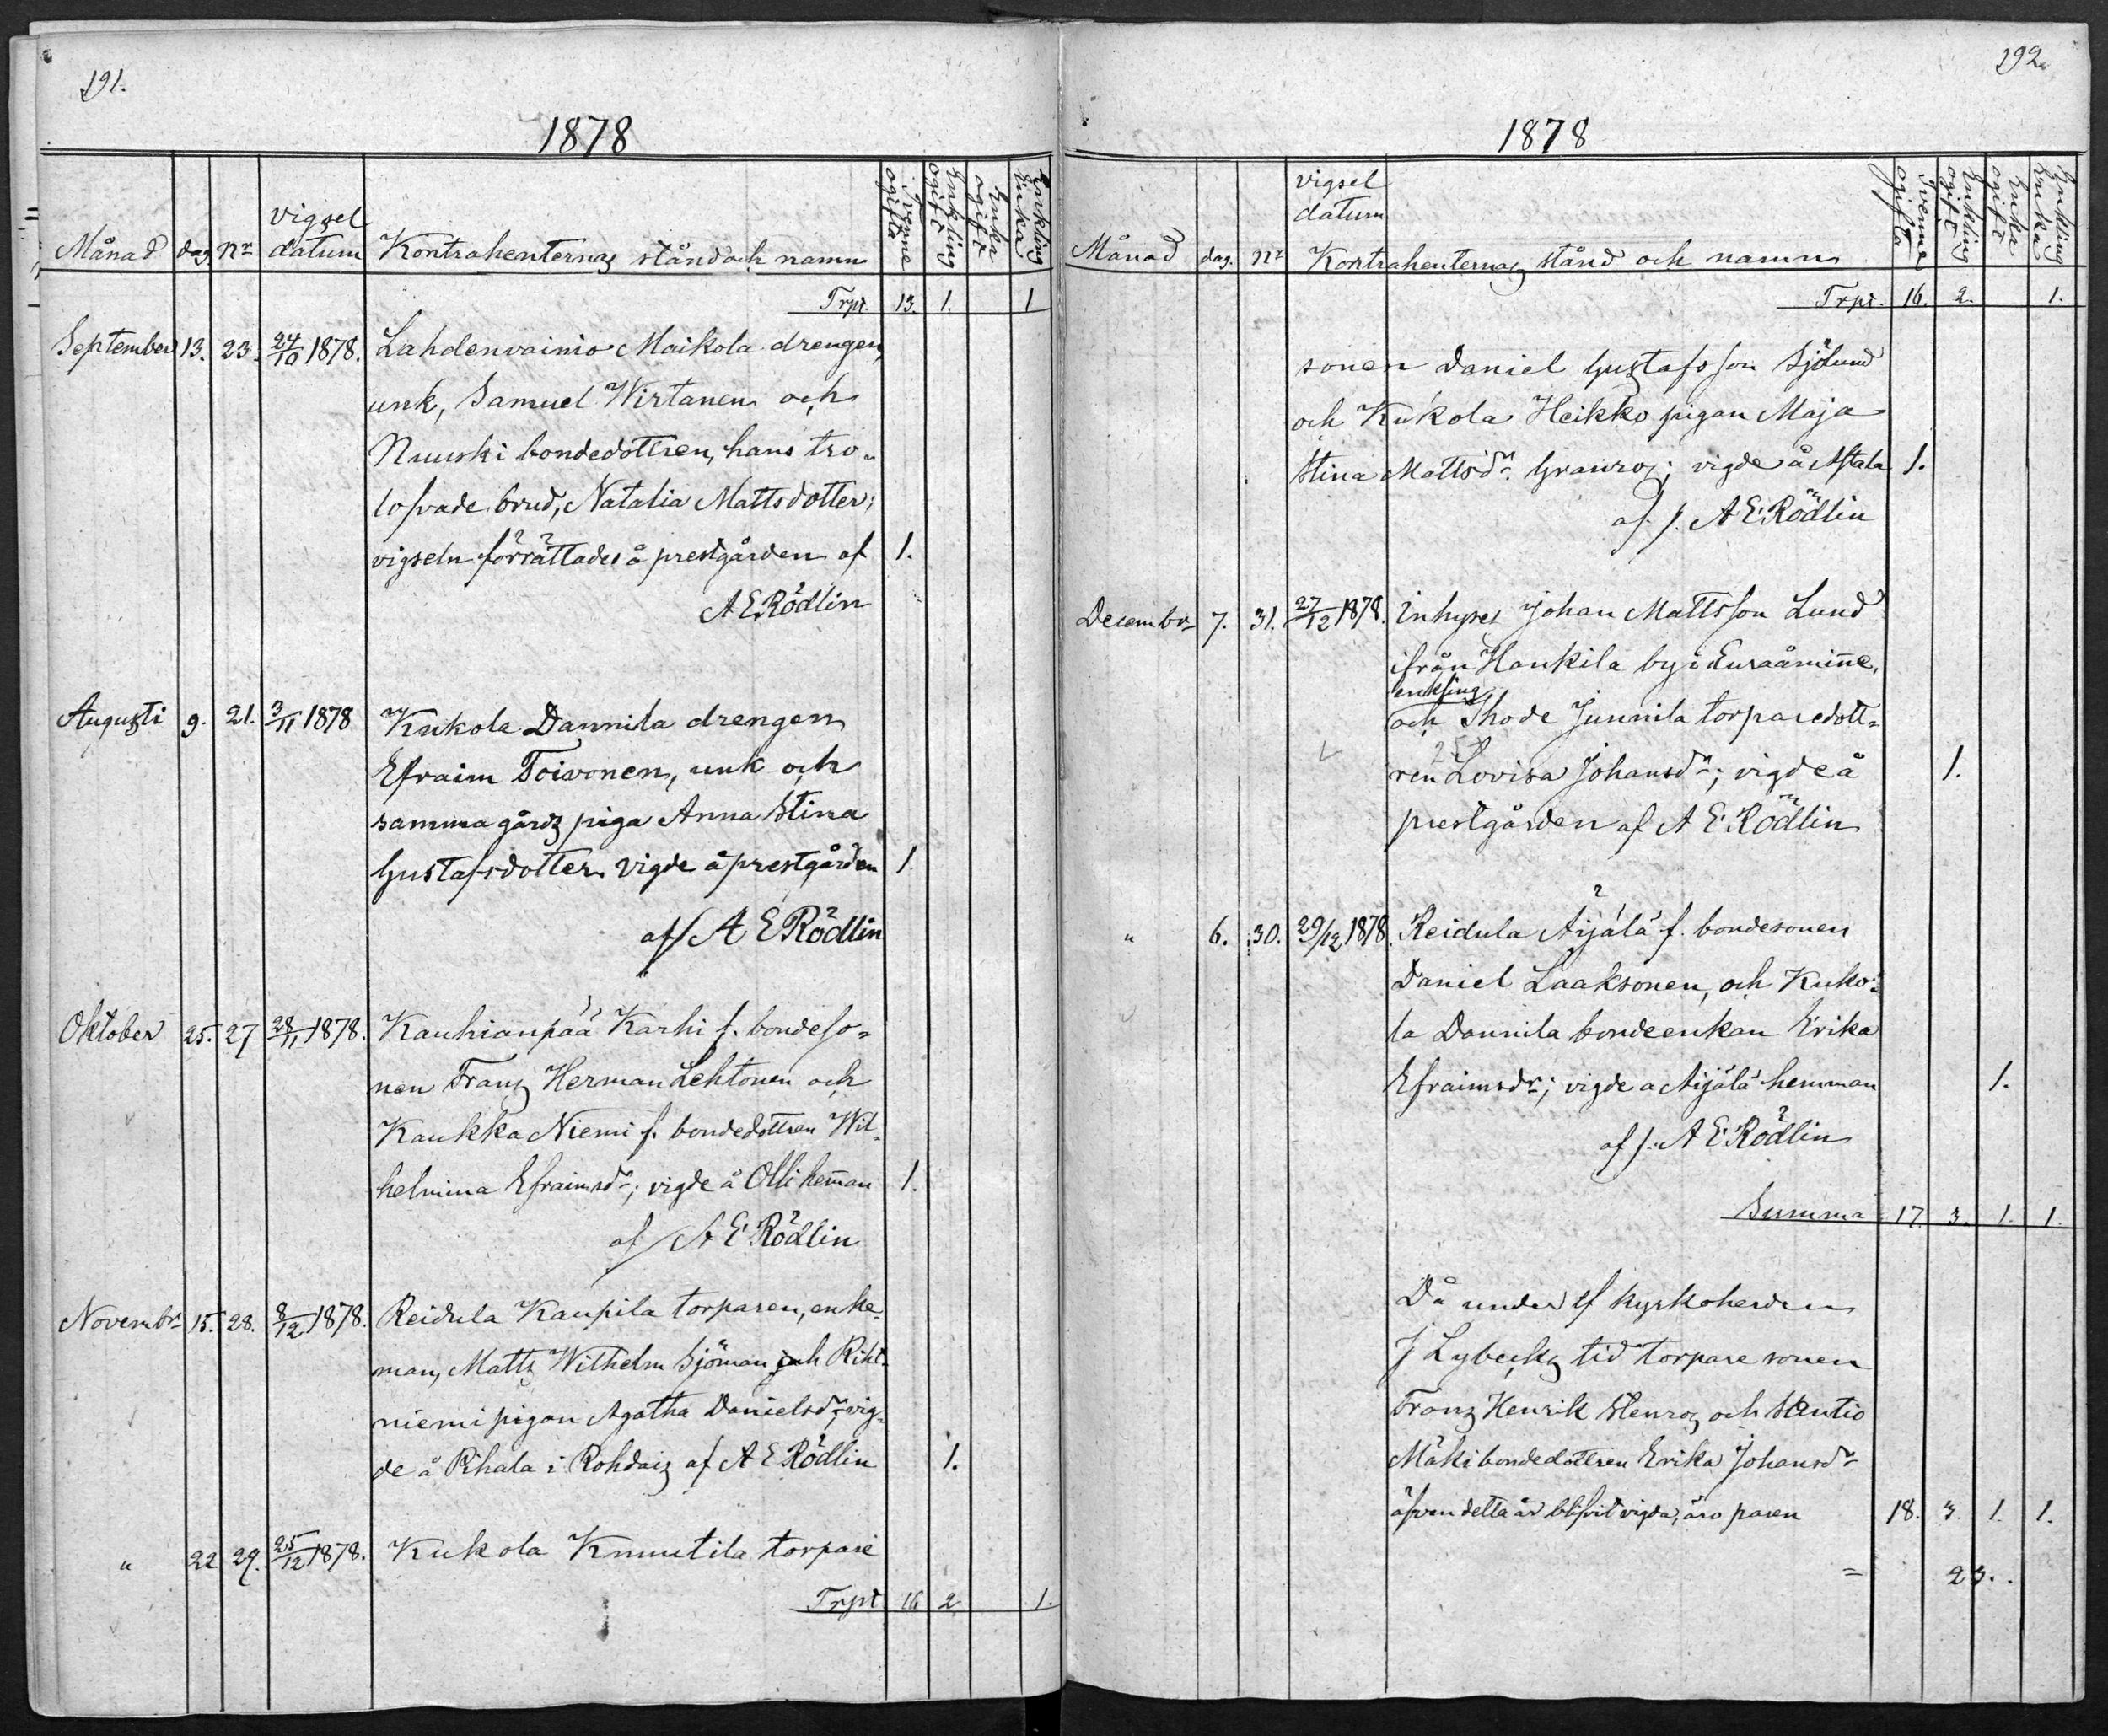 191.
1878
Månad dag. Nr vigsel datum Kontrahenternas stånd och namn Tvenne ogifta Enkling ogift Enka ogift Enkling Enka
Trpt. 13. 1. 1
September 13. 23. 24/10 1878. Lahdenvainio Maikola drengen,
unk, Samuel Wirtanen och
Nuuski bondedottren, hans tro-
lofvade brud, Natalia Mattsdotter;
vigseln förrättades å prestgården af 1.
A E Rödlin
Augusti 9. 21. 3/11 1878 Kukola Dannila drengen
Efraim Toivonen, unk och
samma gårds piga Anna Stina
Gustafsdotter. vigde å prestgården 1.
af A E Rödlin
Oktober 25. 27 28/11 1878. Kauhianpää Karhi f. bondeso-
nen Frans Herman Lehtonen och
Kaukka Niemi f. bondedottren Wil-
helmina Efraimsdr; vigde å Olli hemman 1.
af A E Rödlin
Novembr 15. 28. 8/12 1878. Reidula Kaupila torparen, enke-
man, Matts Wilhelm Sjöman och Riht-
niemi pigan Agatha Danielsdr vig-
de å Rihala i Rohdais af A E Rödlin 1.
" 22 29. 25/12 1878. Kukola Knuutila torpare
Trpt 16 2 1.
192.
1878
Månad dag. Nr vigsel datum Kontrahenternas stånd och namn Tvenne ogifta Enkling ogift Enka ogift Enkling Enka
Trpt. 16. 2. 1.
sonen Daniel Gustafsson Sjölund
och Kukola Heikko pigan Maja
Stina Mattsdr Granros; vigde å 1.
af A E Rödlin
Decembr 7. 31. 27/12 1878. Inhyses Johan Mattsson Lund
ifrån Hankila by i Euraåminne,
enkling
och Thode Junnila torparedott-
ren Lovisa Johansdr; vigde å 1.
prestgården af A E Rödlin
" 6. 30. 29/12 1878. Reidula Äijälä f. bondesonen
Daniel Laaksonen, och Kuko-
la Dannila bondeenkan Erika
Efraimsdr; vigde a Äijälä hemman 1.
af A E Rödlin
Summa 17. 3. 1. 1.
Då under kyrkoherden
J Lybecks tid torpare sonen
Frans Henrik Stenros och
Mäki bondedottren Erika Johansdr
äfven detta år blifvit vigda, äro paren 18. 3. 1. 1.
= 23.